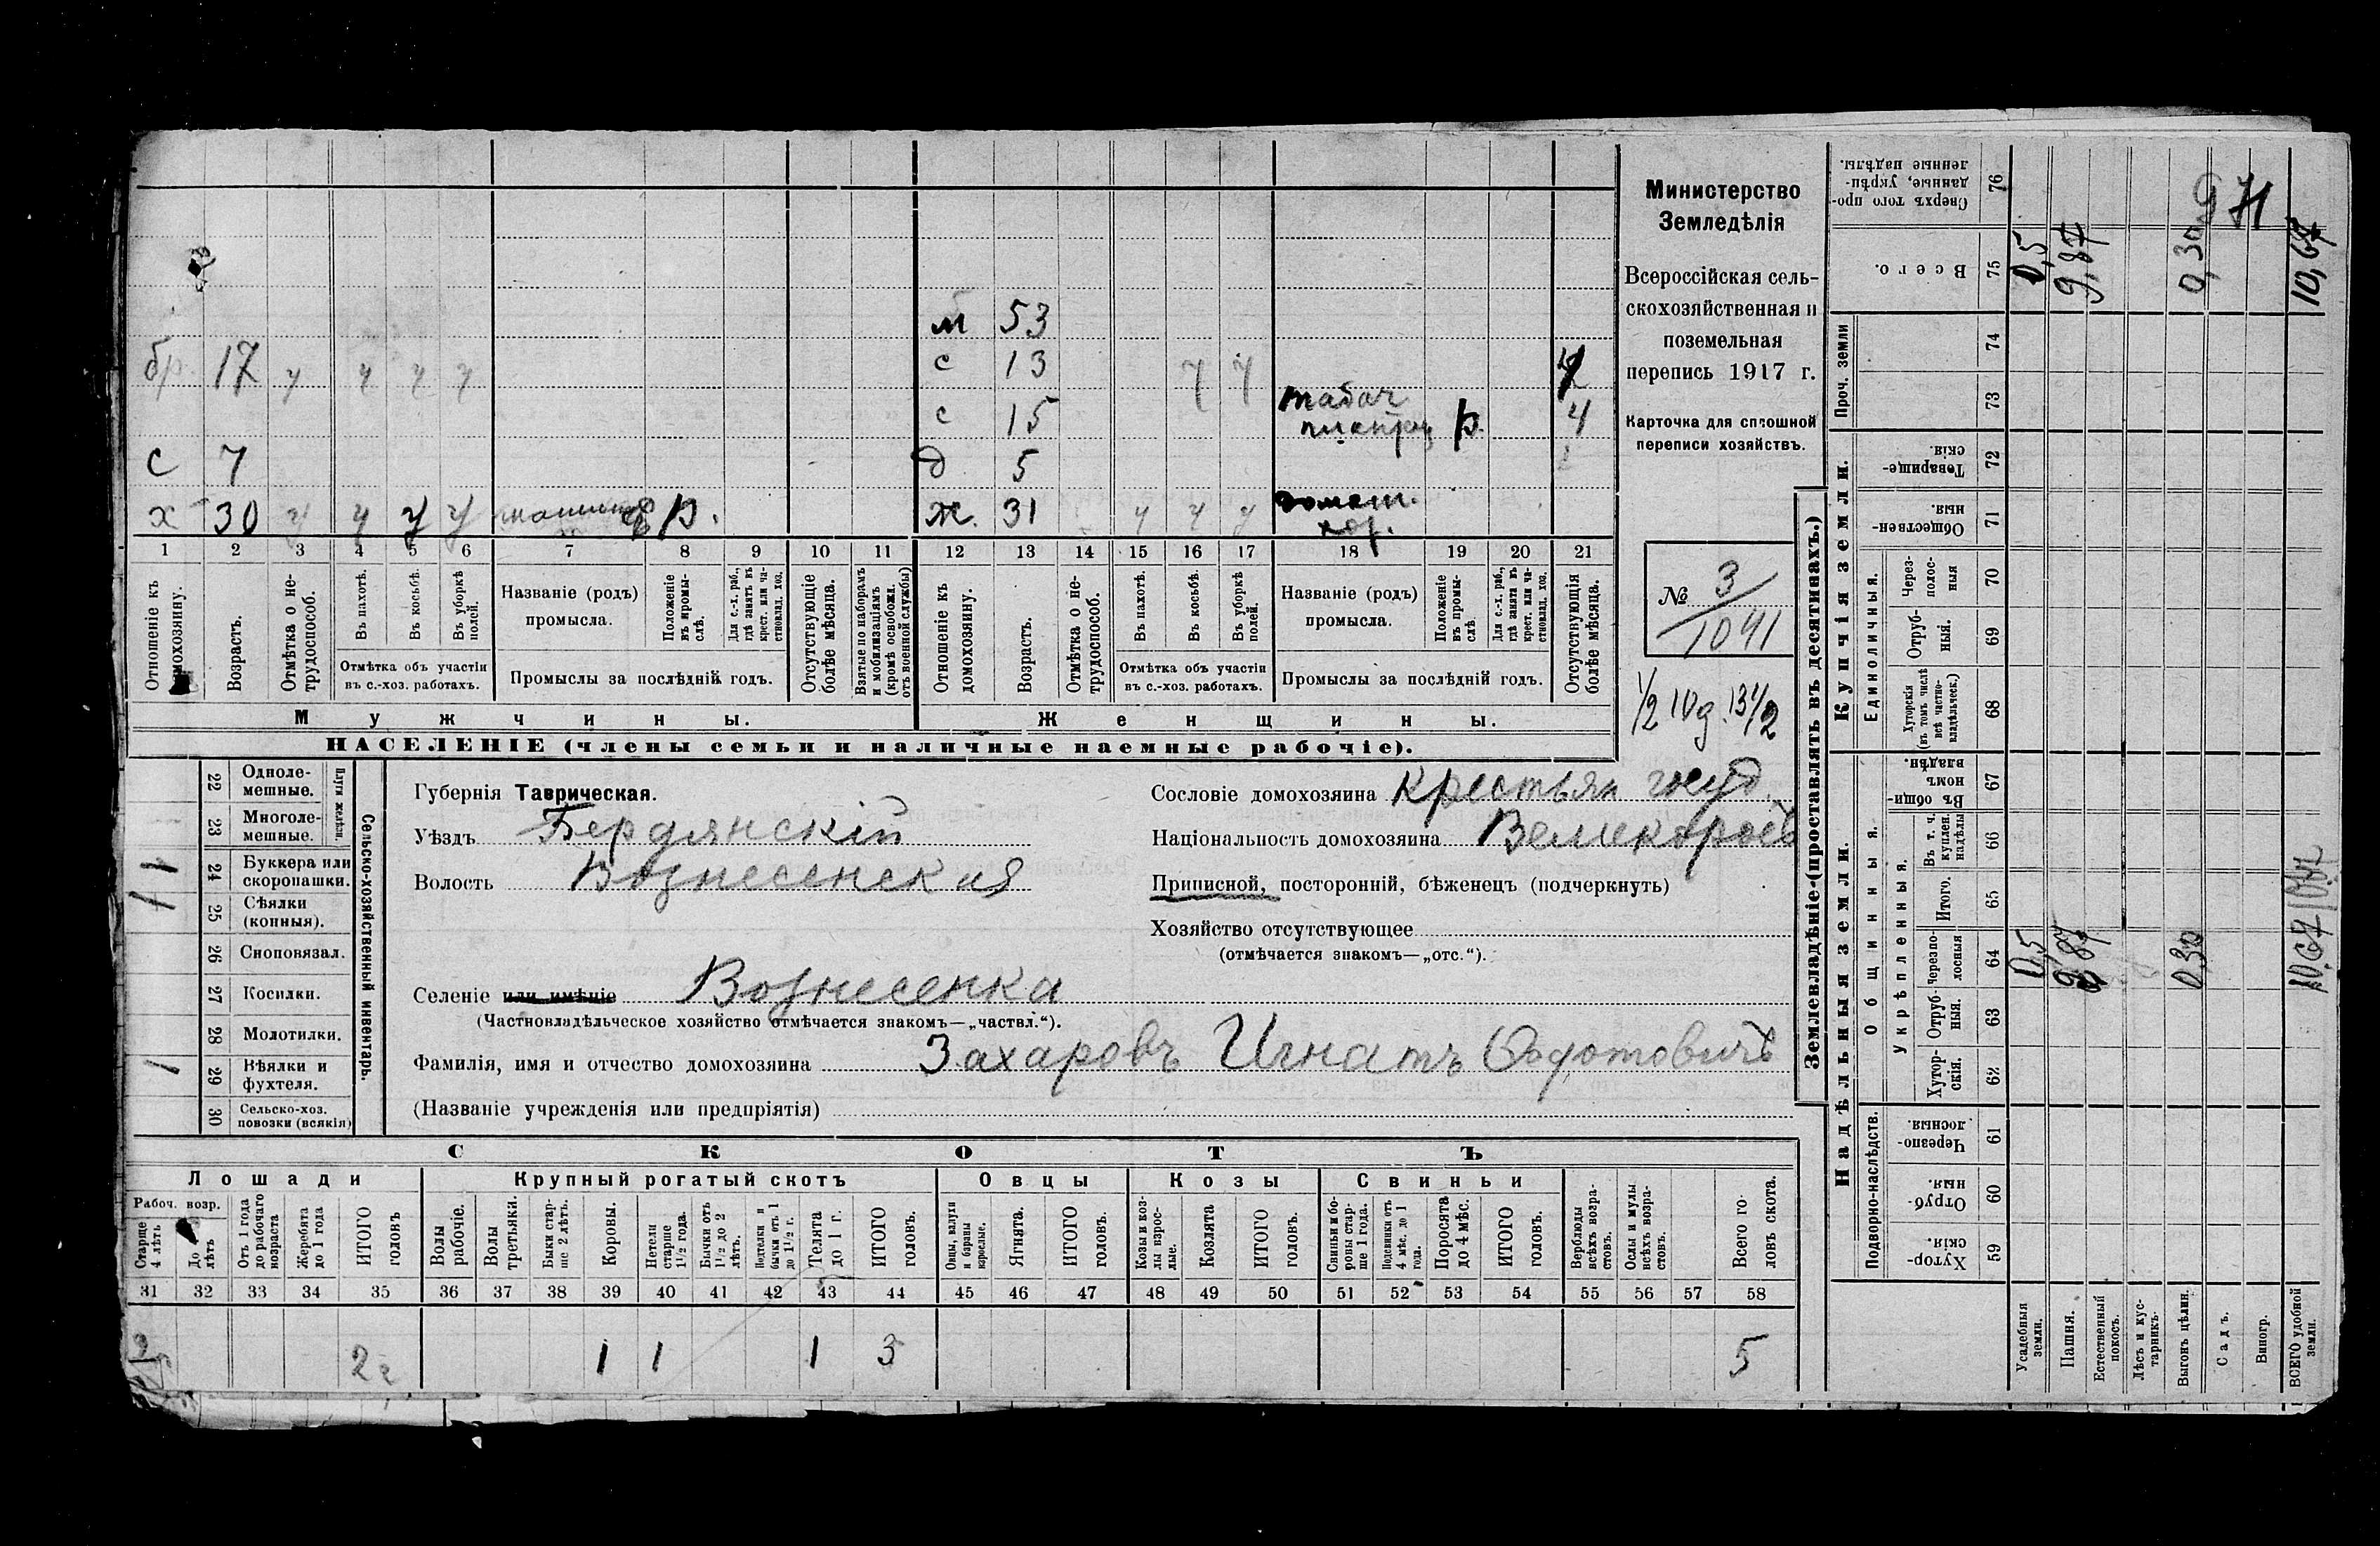 Министерство
Земледѣлія
Всероссійская сель-
скохозяйственная и
поземельная
перепись 1917 г.
Карточка для сплошной
переписи хозяйствъ.
№ 3/1041
1/2 10 д. 13 1/2
м 53
бр. 17 ч ч ч ч
с 13 ч ч
с 15 табач р. 4
с 7
д 5
х 30 ч ч ч ч р.
ж. 31 ч ч ч домаш. хоз.
1 2 3 4 5 6 7 8 9 10 11 12 13 14 15 16 17 18 19 20 21
Отношеніе къ домохозяину.
Возрастъ.
Отмѣтка о не-трудоспособ.
Въ пахотѣ.
Въ косьбѣ.
Въ уборкѣ полей.
Отмѣтка объ участіи
въ с.-хоз. работахъ.
Названіе (родъ)
промысла.
Положеніе въ промы-слѣ.
Для с.-х. раб., гдѣ занятъ въ крест. или ча-стновлад. хоз.
Промыслы за послѣдній годъ.
Отсутствующіе болѣе мѣсяца.
Взятые по наборамъ и мобилизаціямъ (кромѣ освобожд. отъ военной службы)
Отношеніе къ домохозяину.
Возрастъ.
Отмѣтка о не-трудоспособ.
Въ пахотѣ.
Въ косьбѣ.
Въ уборкѣ полей.
Отмѣтка объ участіи
въ с.-хоз. работахъ.
Названіе (родъ)
промысла.
Положеніе въ промы-слѣ.
Для с.-х. раб., гдѣ занята въ крест. или ча-стновлад. хоз.
Промыслы за послѣдній годъ.
Отсутствующія болѣе мѣсяца.
Мужчины.
Женщины.
НАСЕЛЕНІЕ (члены семьи и наличные наемные рабочіе).
Сельско-хозяйственный инвентарь.
Плуги желѣзн.
22 Одноле-мешные.
23 Многоле-мешные.
24 Буккера или скоропашки. 1
25 Сѣялки (конныя).
26 Сноповязал.
27 Косилки.
28 Молотилки.
29 Вѣялки и фухтеля. 1
30 Сельско-хоз. повозки (всякія)
Губернія Таврическая.
Уѣздъ Бердянскій
Волость Вознесенская
Сословіе домохозяина Крестьян госуд.
Національность домохозяина Великоросъ
Приписной, посторонній, бѣженецъ (подчеркнуть)
Хозяйство отсутствующее
(отмѣчается знакомъ—„отс.“).
Селеніе или имѣніе Вознесенка
(Частновладѣльческое хозяйство отмѣчается знакомъ—„частвл.“).
Фамилія, имя и отчество домохозяина Захаровъ Игнатъ Федотовичъ
(Названіе учрежденія или предпріятія)
СКОТЪ
Лошади
Крупный рогатый скотъ
Овцы
Козы
Свиньи
Рабоч. возр.
Старше 4 лѣтъ
До 4 лѣтъ
Отъ 1 года до рабочаго возраста
Жеребята до 1 года
ИТОГО головъ
Волы рабочіе.
Волы третьяки.
Быки стар-ше 2 лѣтъ.
Коровы.
Нетели старше 1 1/2 года.
Бычки отъ 1 1/2 до 2 лѣтъ.
Подтелки и бычки отъ 1 до 1 1/2 г.
Телята до 1 г.
ИТОГО головъ.
Овцы, валухи и бараны взрослые.
Ягнята.
ИТОГО головъ.
Козы и коз-лы взрос-лые.
Козлята
ИТОГО головъ.
Свиньи и бо-ровы стар-ше 1 года.
Подсвинки отъ 4 мѣс. до 1 года.
Поросята до 4 мѣс.
ИТОГО головъ.
Верблюды всѣхъ возра-стовъ.
Ослы и мулы всѣхъ возра-стовъ.
Всего го-ловъ скота.
31 32 33 34 35 36 37 38 39 40 41 42 43 44 45 46 47 48 49 50 51 52 53 54 55 56 57 58
2 2 1 1 1 3 5
Землевладѣніе (проставлять въ десятинахъ.)
Надѣльныя земли.
Купчія земли.
Проч. земли
Подворно-наслѣдств.
Общинныя.
Укрѣпленныя.
Единоличныя.
Хутор-скія. 59
Отруб-ныя. 60
Черезпо-лосныя. 61
Хутор-скія. 62
Отруб-ныя. 63
Черезпо-лосныя 64
Итого. 65
Въ т. ч. куплен. надѣлы 66
Въ общин-номъ владѣн. 67
Хуторскія (въ томъ числѣ всѣ частно-владѣльческ.) 68
Отруб-ныя. 69
Через-полос-ныя 70
Обществен-ныя. 71
Товарище-скія 72
73
74
Всего. 75
Сверхъ того про-данные, укрѣп-ленные надѣлы. 76
Усадебныя земли. 0,5 0,5
Пашня. 9,87 9,87
Естественный покосъ.
Лѣсъ и кус-тарникъ.
Выгонъ цѣлин. 0,30 0,30
Садъ.
Виногр.
ВСЕГО удобной земли. 10,67 10,67